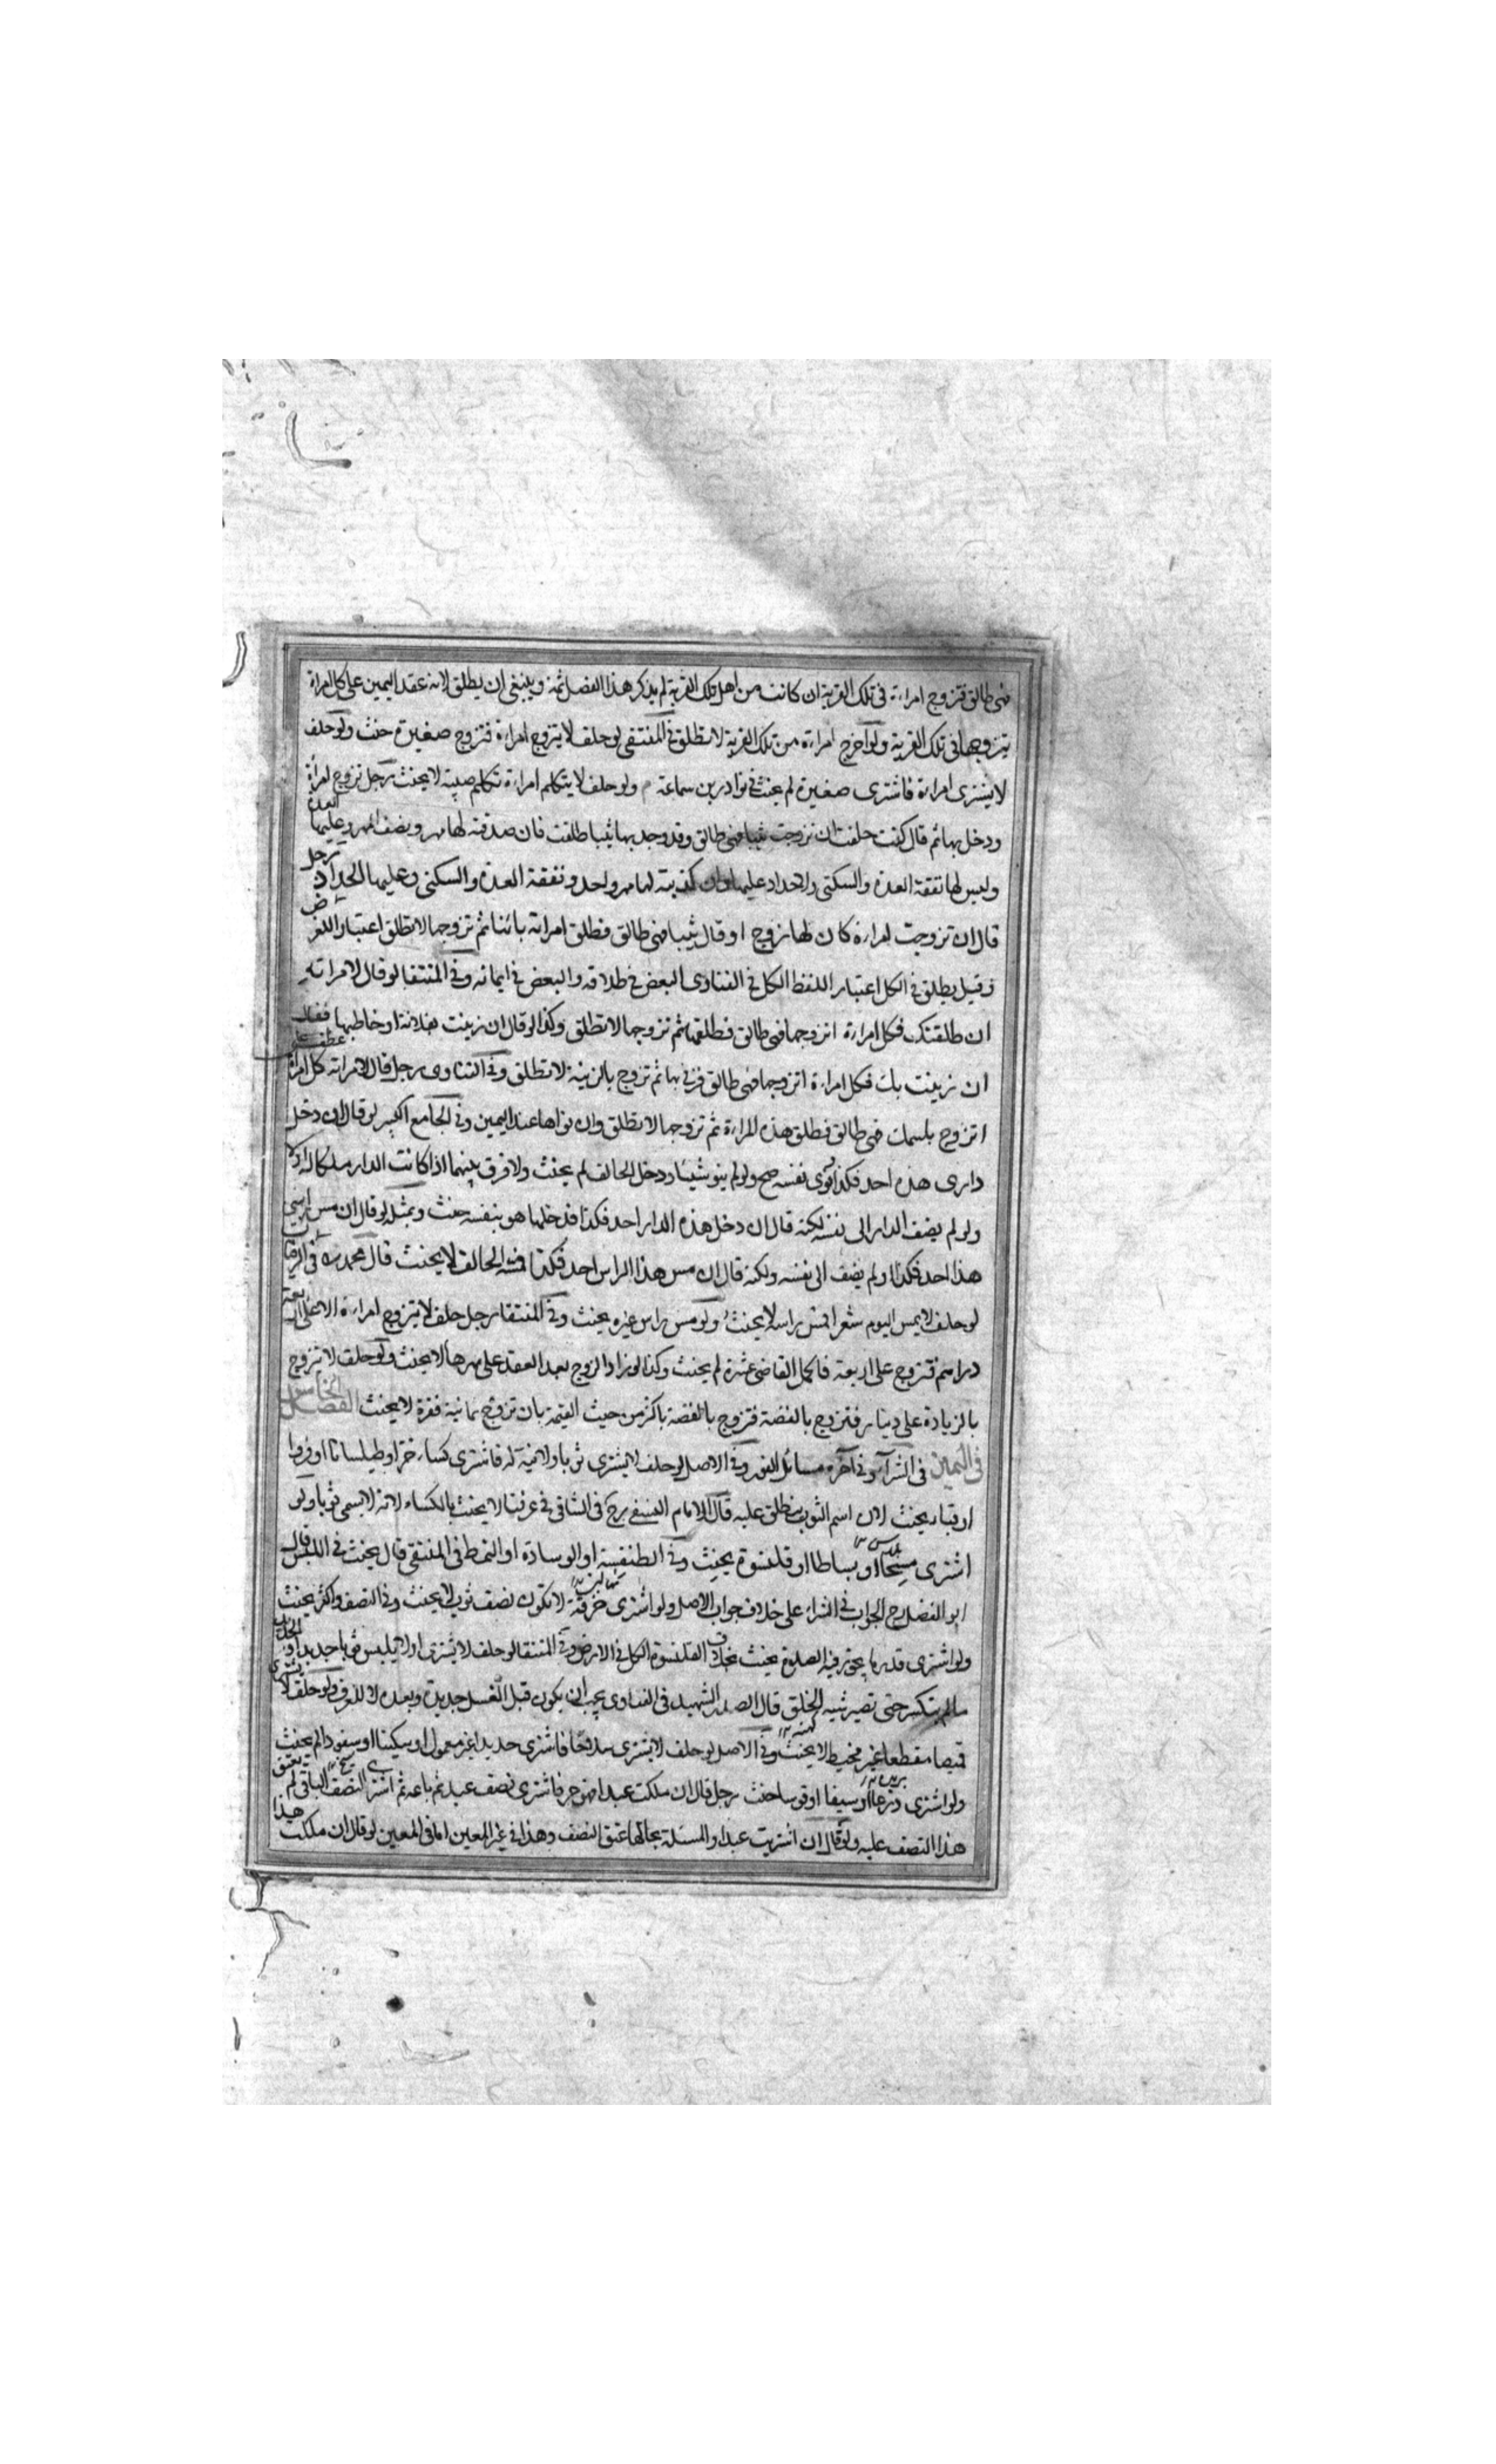 فهى طالق فتزوج امراءة فى تلك القرية ان كانت من اهل تلك القرية لم يذكر هذا الفصل ثمة وينبغى ان يطلق لانه عقد اليمين على كل امراة
يتزوجها فى تلك القرية ولو اخرج امراءة من تلك القرية لا تطلق فى المنتقى لو حلف لا يتزوج امراءة فتزوج صغيرة حنث ولو حلف
لا يشترى امراءة فاشترى صغيرة لم يحنث فى نوادر بن سماعة ولو حلف لا يتكلم امراءة تكلم صبية لا يحنث رجل تزوج امرأة
ودخل بها ثم قال كنت حلفت ان تزوجت ثيبا فهى طالق وقد وجد بها ثيبا طلقت فان صدقته لها مهر ونصف المهر وعليها العدة
وليس لها نفقة العدة والسكنى والاحداد عليها وان كذبته لها مهر واحد ونفقة العدة والسكنى وعليها الحداد رجل
قال ان تزوجت امراءة كان لها زوج او قال ثيبا فهى طالق فطلق امراته بائنا ثم تزوجها لا تطلق اعتبارا للغرض
وقيل يطلق فى الكل اعتبار اللفظ الكل فى الفتاوى البعض فى طلاقه والبعض فى ايمانه وفى المنتقا لو قال لامراته
ان طلقتك فكل امراءة اتزوجها فهى طالق فطلقها ثم تزوجها لا تطلق وكذا لو قال ان زنيت بفلانة او خاطبها فقال
ان زنيت بك فكل امراءة اتزوجها فهى طالق فزنى بها ثم تزوج بالزنية لا تطلق وفى الفتاوى رجل قال لامراته كل امراة
اتزوج باسمك فهى طالق فطلق هذه المراءة ثم تزوجها لا تطلق وان نواها عند اليمين وفى الجامع الكبير لو قال ان دخل
دارى هذه احد فكذا نوى نفسه صح ولو لم ينو شيئا ودخل الحالف لم يحنث ولا فرق بينهما اذا كانت الدار ملكا له او لا
ولو لم يضف الدار الى نفسه لكنه قال ان دخل هذه الدار احد فكذا فدخلها هو بنفسه حنث وبمثله لو قال ان مس راسى
هذا احد فكذا ولم يضف الى نفسه ولكنه قال ان مس هذا الراس احد فكذا فمسه الحالف لا يحنث قال محمد فى
لو حلف لا يمس اليوم شعرا فمس راسه لا يحنث ولو مس راس غيره يحنث وفى المنتقا رجل حلف لا يتزوج امراءة الا على اربعة
دراهم فتزوج على اربعة فاكمل القاضى عشرة لم يحنث وكذا لو زاد الزوج بعد العقد على مهرها لا يحنث ولو حلف لا تزوج
بالزيادة على دينار فتزوج بالفضة فتزوج بالفضة باكثر من حيث القيمة بان تزوج بمانية لا يحنث الفصل الخامس
فى اليمين فى الشرآء وفى آخره مسائل وفى الاصل لو حلف لا يشترى ثوبا ولا نية له فاشترى كساء خز او طيلسانا او فروا
او قباء يحنث لان اسم الثوب ينطلق عليه قال الامام النسفى رح فى الشافى فى عرفنا لا يحنث بالكساء لانه لا يسمى ثوبا ولو
اشترى مسحا او بساطا او قلنسوة يحنث وفى الطنفسة او الوسادة او النمط فى المنتقى قال يحنث فى اللبس قال
ابو الفضل رح الجواب فى الشراء على خلاف جواب الاصل ولو اشترى خرقة لا تكون نصف ثوب لا يحنث وفى النصف واكثر يحنث
ولو اشترى قدر ما يجوز فيه الصلوة يحنث بخلاف القلنسوة الكل فى الارض وفى المنتقا لو حلف لا يشترى او لا يلبس ثوبا جديدا
مالم ينكسر حتى تصير شبه الخلق قال الصدر الشهيد فى الفتاوى يجب ان يكون قبل الغسل جديدة وبعده لا للعرف ولو حلف لا يشترى
قميصا مقطعا غير مخيط لا يحنث وفى الاصل لو حلف لا يشترى سلاحا فاشترى حديدا غير معمول او سكينا او سفودا لم يحنث
ولو اشترى درعا او سيفا او قوسا حنث رجل قال ان ملكت عبدا فهو حر فاشترى نصف عبد ثم باعه ثم اشترى النصف الباقى لم يعتق
هذا النصف عليه ولو قال ان اشتريت عبدا والمسئلة بحالها عتق النصف وهذا فى غير المعين اما فى المعين لو قال ان ملكت هذا